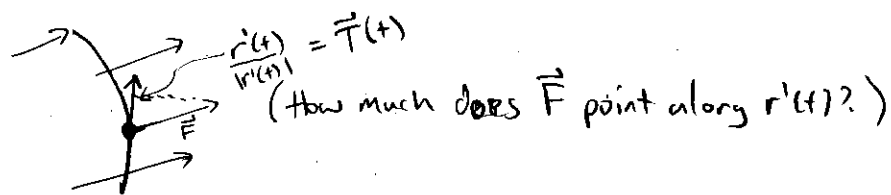 r'(t)/|r'(t)| = T⃗(t)
(How much does F⃗ point along r'(t)?)
F⃗